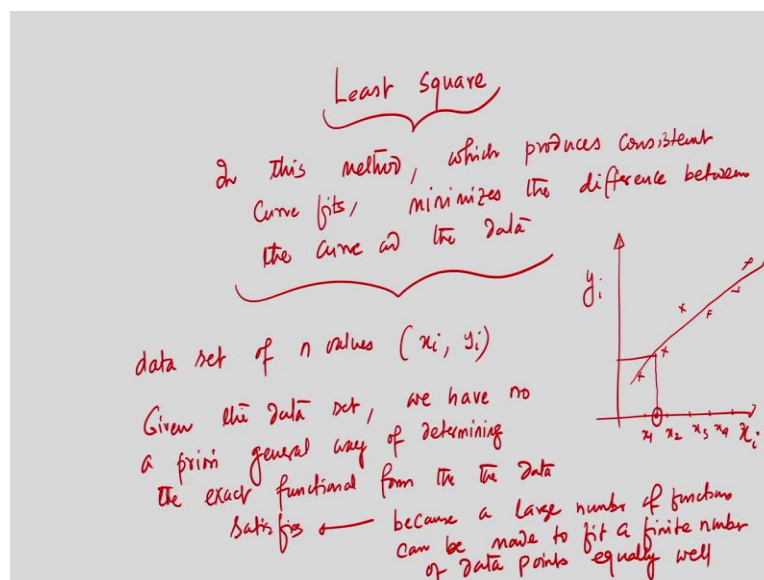 Least Square
In this method, which produces consistent
curve fits, minimizes the difference between
the curve and the data
y_i
data set of n values (x_i, y_i)
x_1 x_2 x_3 x_4 x_i
Given the data set, we have no
a priori general way of determining
the exact functional form the the data
satisfies ← because a large number of functions
can be made to fit a finite number
of data points equally well